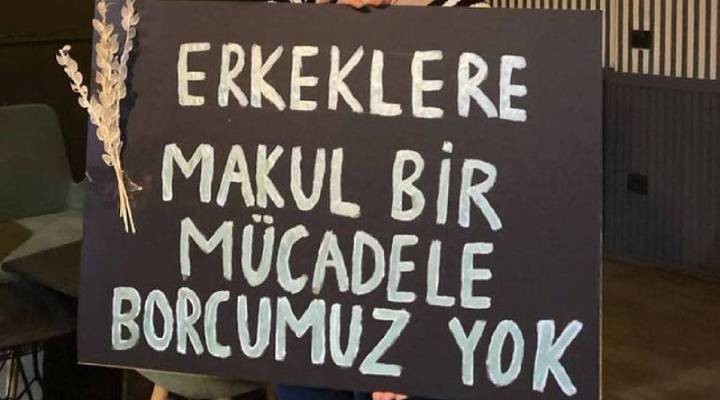 ERKEKLERE
MAKUL BİR
MÜCADELE
BORCUMUZ YOK